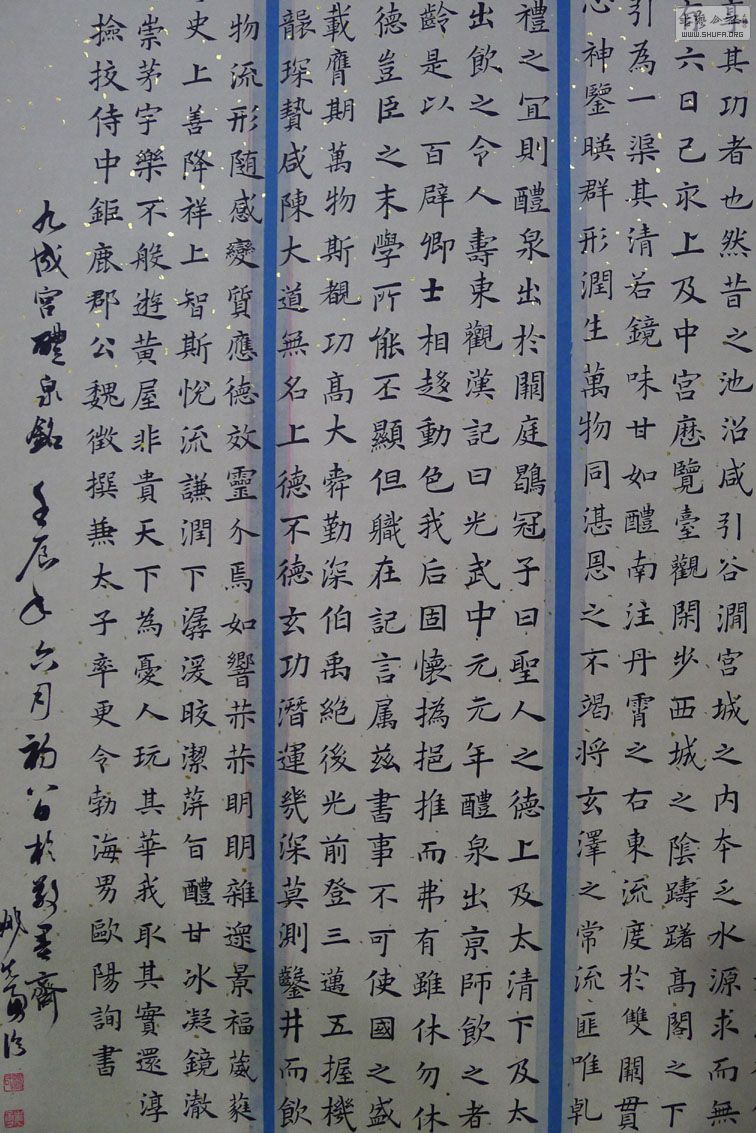 其功者也然昔之池沼咸引谷澗宮城之内本乏水源求而無
六日己亥上及中宮歷覽臺觀閑步西城之陰躊躇高閣之下
引為一渠其清若鏡味甘如醴南注丹霄之右東流度於雙闕貫
心神鑒暎群形潤生萬物同湛恩之不竭將玄澤之常流匪唯乹
禮之宜則醴泉出於闕庭鶡冠子曰聖人之德上及太清下及太
出飲之令人壽東觀漢記曰光武中元元年醴泉出京師飲之者
齡是以百辟卿士相趍動色我后固懷撝挹推而弗有雖休勿休
德豈臣之末學所能丕顯但職在記言属茲書事不可使國之盛
載膺期萬物斯覩功高大舜勤深伯禹絕後光前登三邁五握機
襲琛贄咸陳大道無名上德不德玄功潛運幾深莫測鑿井而飲
物流形随感變質應德效靈介焉如響赫赫明明雜遝景福葳蕤
史上善降祥上智斯悅流謙潤下潺湲皎潔蓱旨醴甘冰凝鏡澈
崇茅宇樂不般遊黃屋非貴天下為憂人玩其華我取其實還淳
撿挍侍中鉅鹿郡公魏徵撰兼太子率更令勃海男歐陽詢書
九成宮醴泉銘 壬辰年六月初八日於齋
WWW.SHUFA.ORG